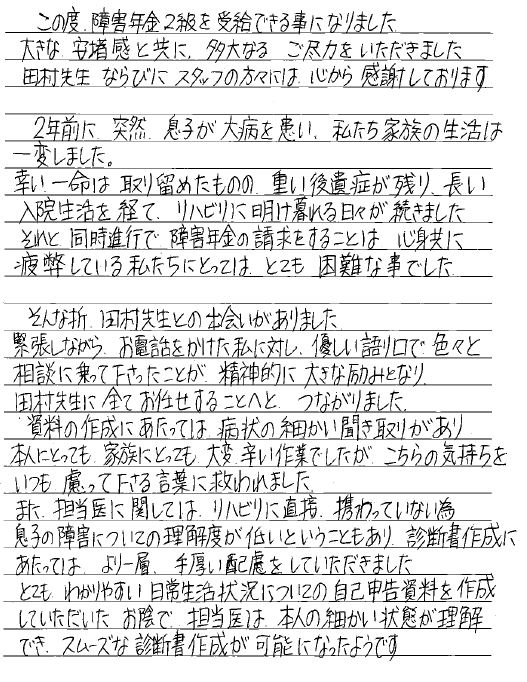 この度、障害年金2級を受給できる事になりました
大きな 安堵感と共に、多大なる ご尽力をいただきました
田村先生 ならびに スタッフの方々には、心から 感謝しております
2年前に、突然、息子が 大病を患い、私たち家族の生活は
一変しました。
幸い、一命は 取り留めたものの、重い後遺症が残り、長い
入院生活を 経て、リハビリに明け暮れる日々が 続きました
それと 同時進行で 障害年金の請求をすることは、心身共に
疲弊している私たちにとっては、とても 困難な事でした
そんな折、田村先生との出会いがありました
緊張しながら、お電話をかけた私に対し、優しい語り口で 色々と
相談に乗って下さったことが、精神的に 大きな励みとなり、
田村先生に 全てお任せすることへと、つながりました。
資料の作成にあたっては、病状の細かい聞き取りがあり
本人にとっても、家族にとっても、大変 辛い作業でしたが、こちらの気持ちを
いつも 慮って下さる言葉に救われました
また、担当医に関しては、リハビリに直接、携わっていない為
息子の障害についての理解度が 低いということもあり、診断書作成に
あたっては、より一層、手厚い配慮をしていただきました
とても わかりやすい 日常生活状況についての自己申告資料を作成
していただいた お陰で、担当医は、本人の細かい状態が理解
でき、スムーズな 診断書作成が 可能になったようです